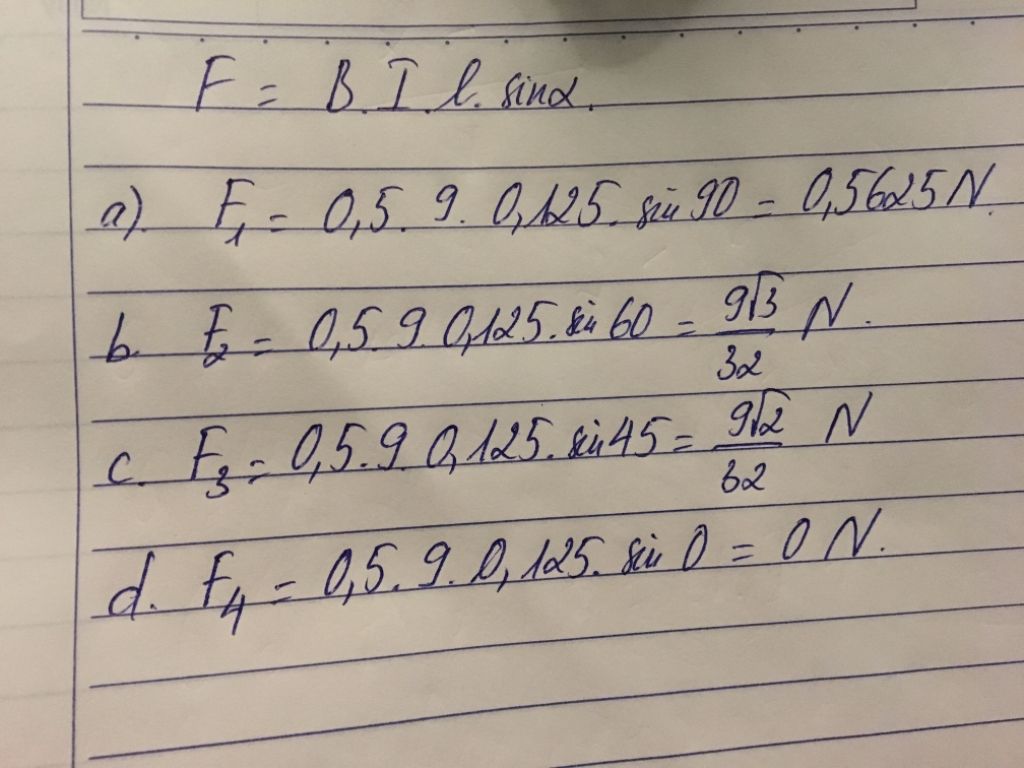 F = B.I.l.sinα.
a). F₁ = 0,5. 9. 0,125. sin 90 = 0,5625 N.
b. F₂ = 0,5. 9. 0,125. sin 60 = 9√3/32 N.
c. F₃ = 0,5. 9. 0,125. sin 45 = 9√2/32 N
d. F₄ = 0,5. 9. 0,125. sin 0 = 0 N.